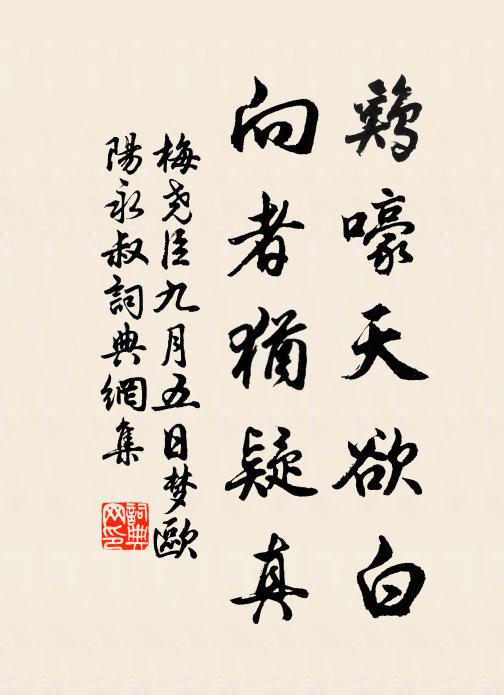 鷄嚎天欲白
向者猶疑真
梅尧臣九月五日梦歐
陽永叔詞典網集
詞典
网印